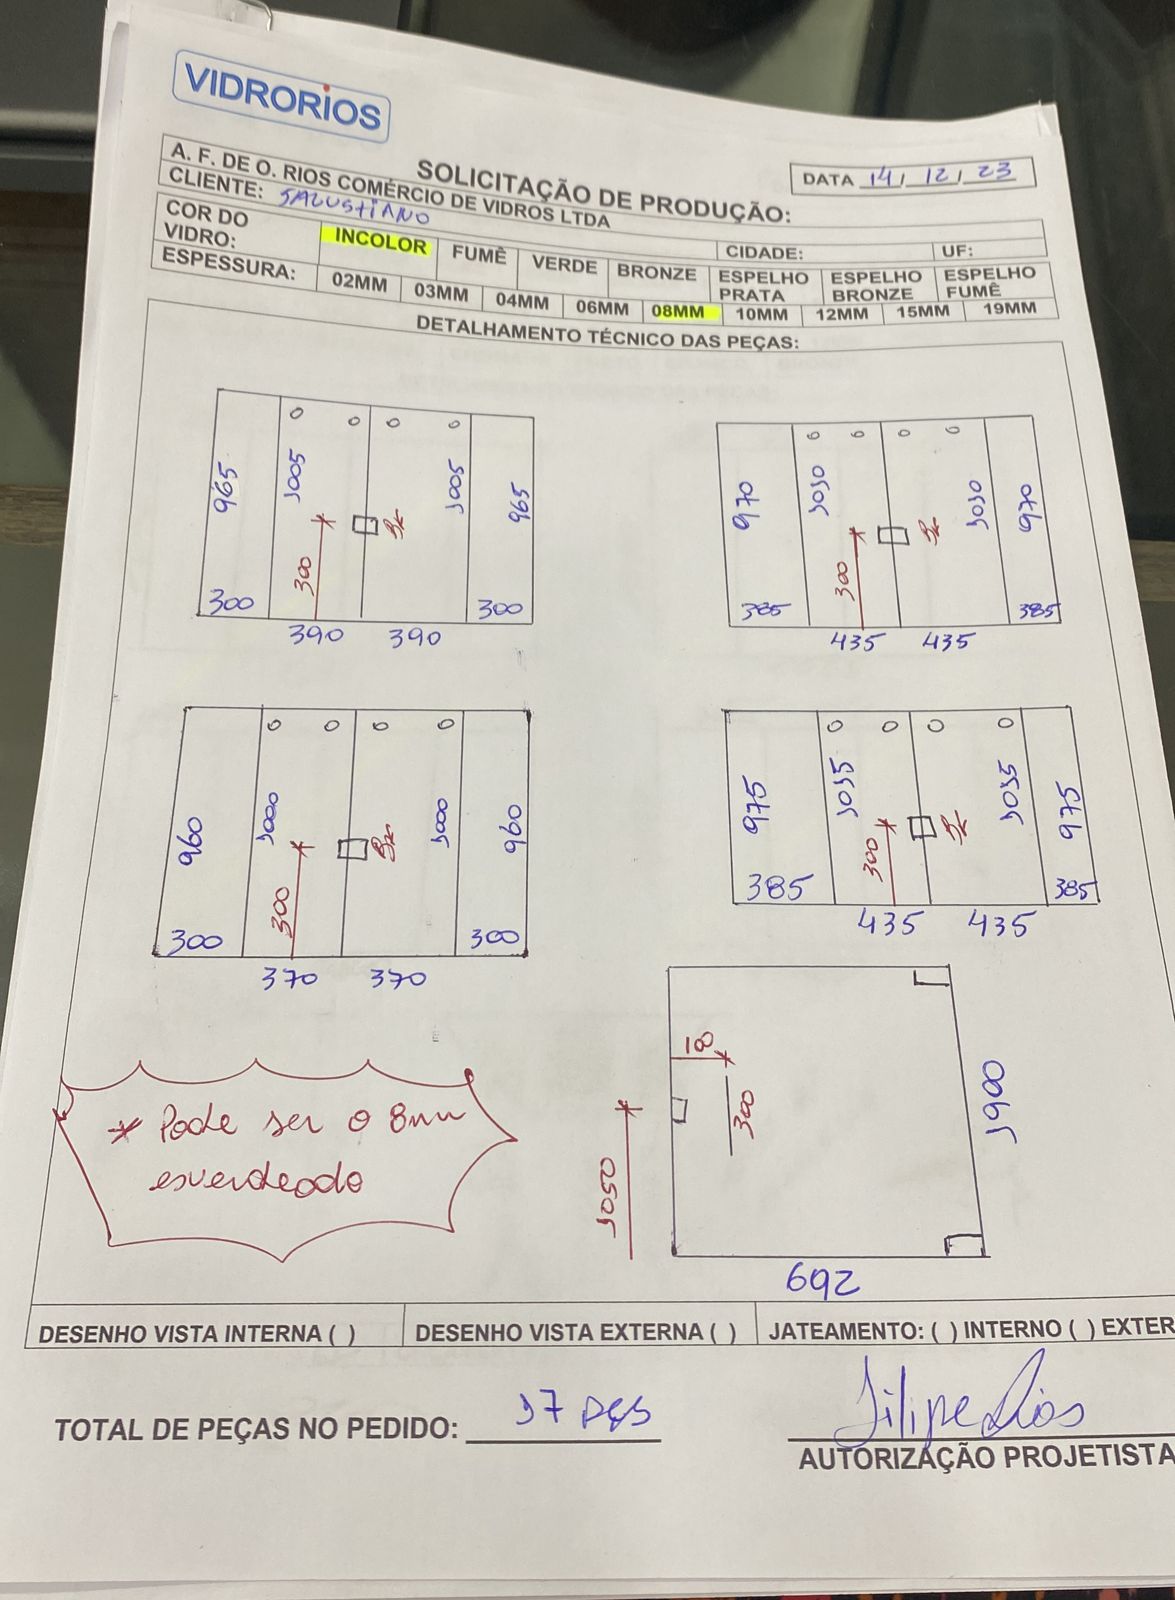 VIDRORIOS
SOLICITAÇÃO DE PRODUÇÃO:
DATA 14/12/23
A. F. DE O. RIOS COMÉRCIO DE VIDROS LTDA
CLIENTE: SALUSTIANO
CIDADE: UF:
COR DO VIDRO: INCOLOR FUMÊ VERDE BRONZE ESPELHO PRATA ESPELHO BRONZE ESPELHO FUMÊ
ESPESSURA: 02MM 03MM 04MM 06MM 08MM 10MM 12MM 15MM 19MM
DETALHAMENTO TÉCNICO DAS PEÇAS:
965 1005 1005 965
300
300 300
390 390
970 1010 1010 970
300
385 385
435 435
960 1000 1000 960
300
300 300
370 370
975 1015 1015 975
300
385 385
435 435
* Pode ser o 8mm
esverdeado
100
300
1050
1900
692
DESENHO VISTA INTERNA ( ) DESENHO VISTA EXTERNA ( ) JATEAMENTO: ( ) INTERNO ( ) EXTER
TOTAL DE PEÇAS NO PEDIDO: 17 pçs
Filipe Rios
AUTORIZAÇÃO PROJETISTA